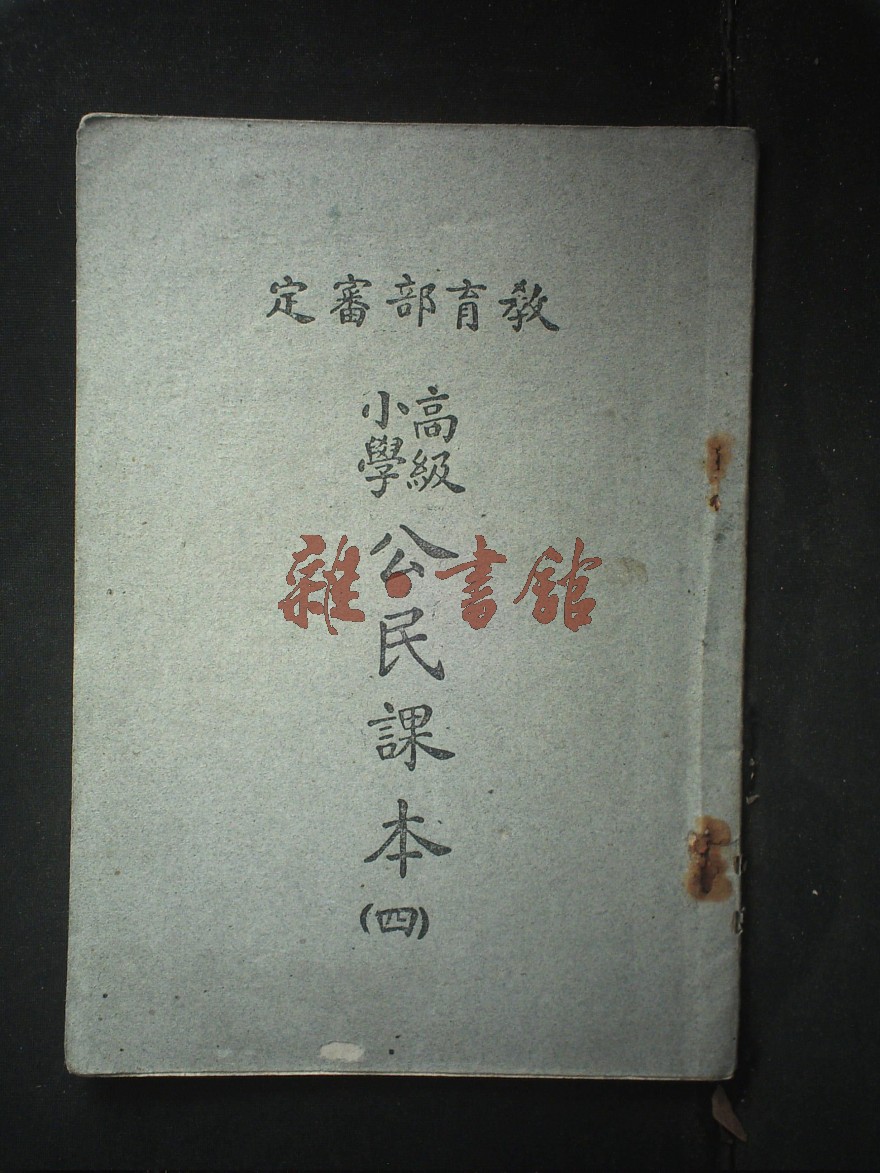 教育部審定
高級
小學
公民課本
(四)
雜·書館